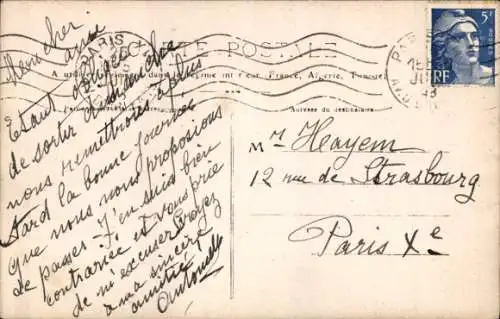 Mon cher ami
Étant obligée
de sortir dimanche
nous remettrons à plus
tard la bonne journée
que nous nous proposions
de passer. J'en suis bien
contrariée et vous prie
de m'excuser. Croyez
à ma sincère
amitié
Antoinette
PARIS
CARTE POSTALE
A utiliser seulement dans le régime intérieur, France, Algérie, Tunisie
Adresse du destinataire
5F
RF
PARIS
48
Mr Hayem
12 rue de Strasbourg
Paris Xe